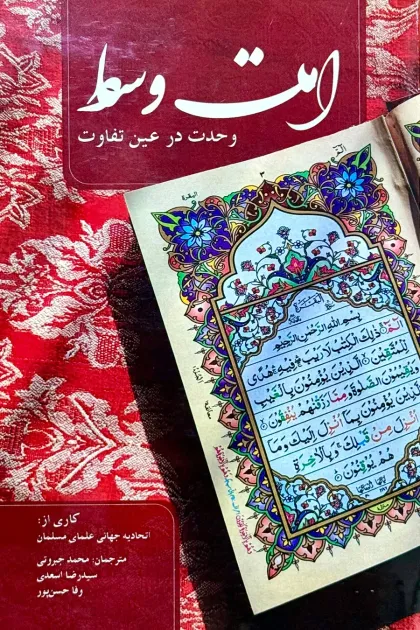 امت وسط
وحدت در عین تفاوت
البقرة
٣
بسم الله الرحمن الرحيم
الم ذلك الكتب لا ريب فيه هدى
للمتقين الذين يؤمنون بالغيب
ويقيمون الصلوة ومما رزقنهم ينفقون
والذين يؤمنون بما أنزل إليك وما
أنزل من قبلك وبالآخرة
هم يوقنون
کاری از:
اتحادیه جهانی علمای مسلمان
مترجمان: محمد جبروتی
سیدرضا اسعدی
وفا حسن‌پور